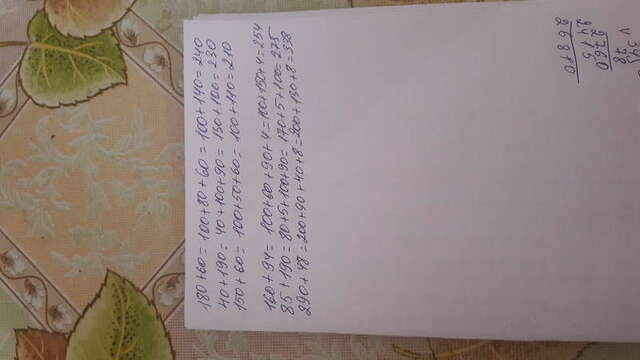 180+60= 100+80+60= 100+140=240
40+190= 40+100+90= 130+100=230
150+60= 100+50+60= 100+110=210
160+94= 100+60+90+4=100+150+4=254
85+190= 80+5+100+90= 170+5+100=275
290+48=200+90+40+8=200+130+8=338
345
78
2760
2415
26910